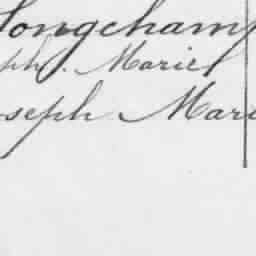 Longcham
ph. Mariel
seph Mari